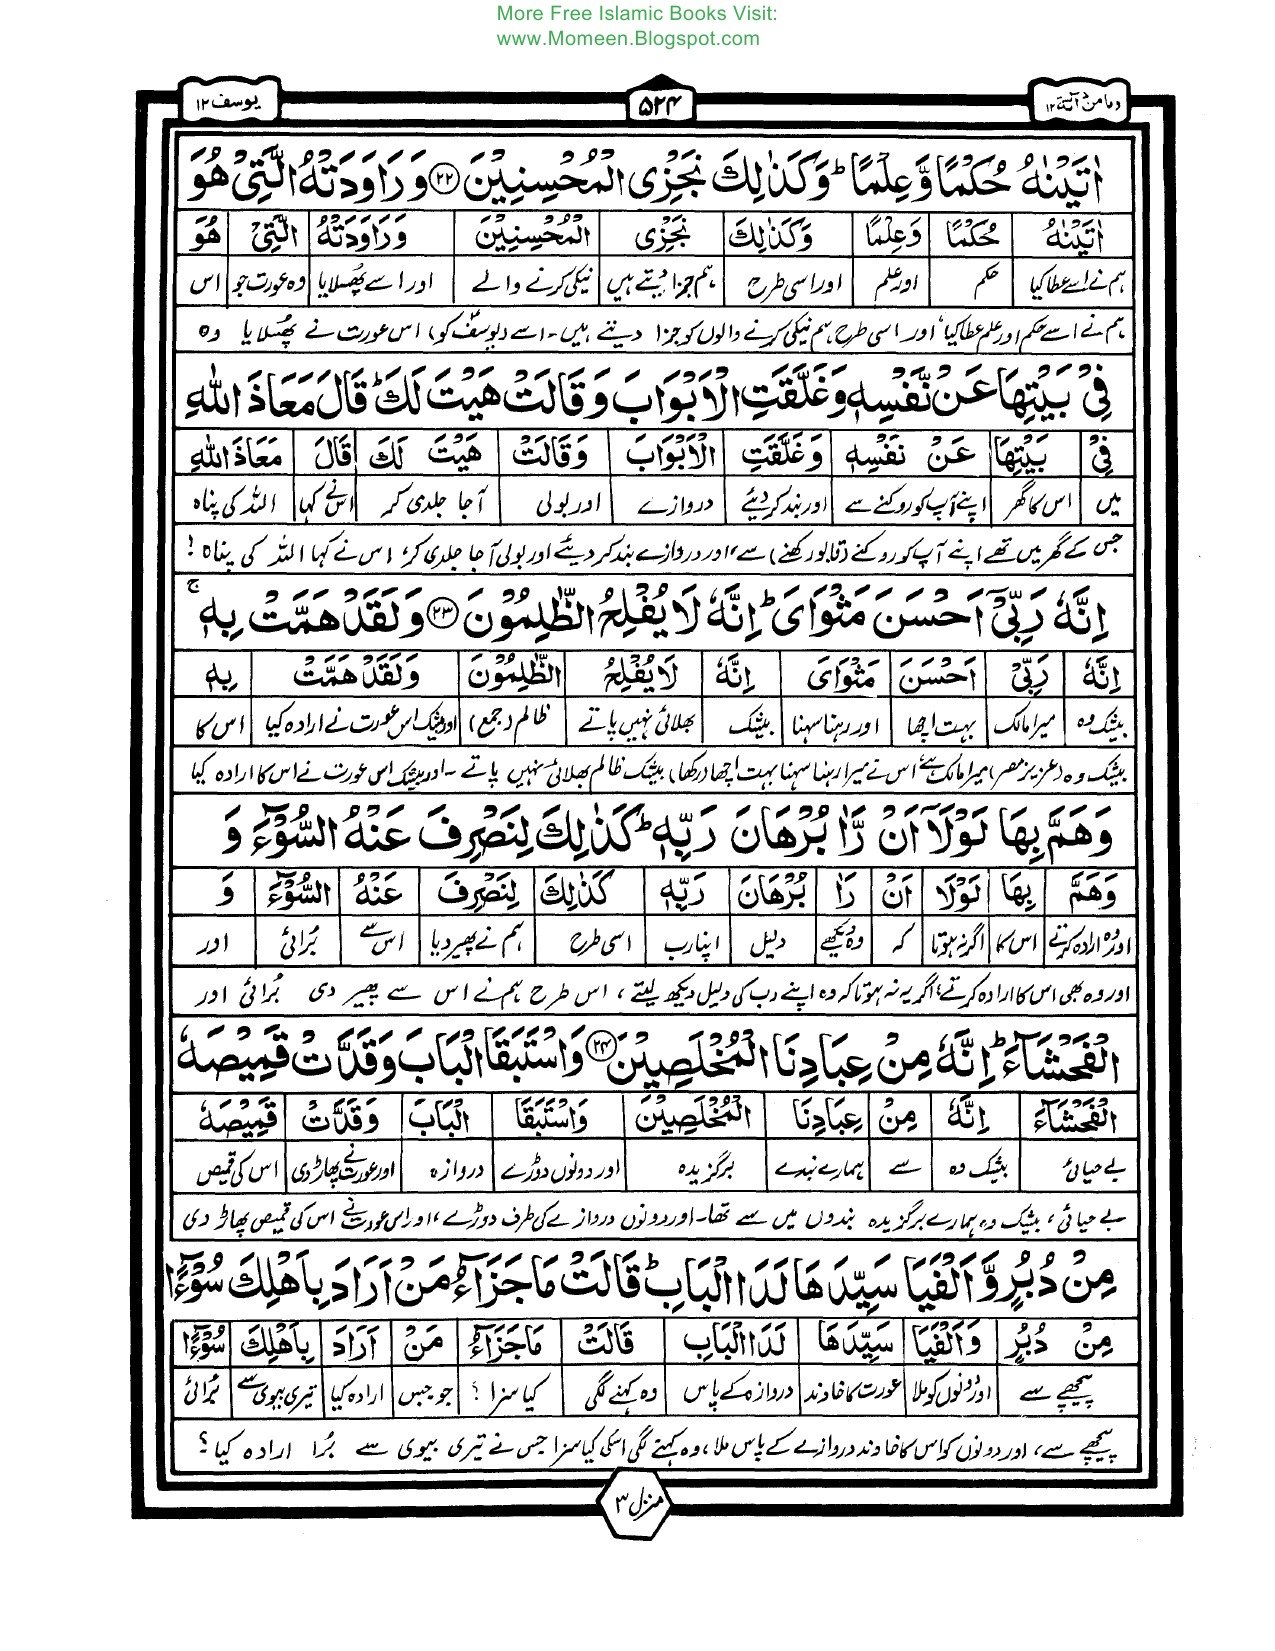 More Free Islamic Books Visit:
www.Momeen.Blogspot.com
وما من دآبة ۱۲
۵۲۴
یوسف ۱۲
اٰتَيْنٰهُ حُكْمًا وَّعِلْمًا ؕ وَكَذٰلِكَ نَجْزِى الْمُحْسِنِيْنَ ﴿۲۲﴾ وَرَاوَدَتْهُ الَّتِىْ هُوَ
اٰتَيْنٰهُ حُكْمًا وَعِلْمًا وَكَذٰلِكَ نَجْزِى الْمُحْسِنِيْنَ وَرَاوَدَتْهُ الَّتِىْ هُوَ
ہم نے اسے عطا کیا حکم اور علم اور اسی طرح ہم جزا دیتے ہیں نیکی کرنے والے اور اسے پھسلایا وہ عورت جو اس
ہم نے اسے حکم اور علم عطا کیا، اور اسی طرح ہم نیکی کرنے والوں کو جزا دیتے ہیں۔ اسے (یوسف کو) اس عورت نے پھسلایا وہ
فِىْ بَيْتِهَا عَنْ نَّفْسِهٖ وَغَلَّقَتِ الْاَبْوَابَ وَقَالَتْ هَيْتَ لَكَ ؕ قَالَ مَعَاذَ اللّٰهِ
فِىْ بَيْتِهَا عَنْ نَفْسِهٖ وَغَلَّقَتِ الْاَبْوَابَ وَقَالَتْ هَيْتَ لَكَ قَالَ مَعَاذَ اللّٰهِ
میں اس کا گھر اپنے آپ کو روکنے سے اور بند کر دیئے دروازے اور بولی آجا جلدی کر اس نے کہا اللہ کی پناہ
جس کے گھر میں تھے اپنے آپ کو روکنے (قابو رکھنے) سے، اور دروازے بند کر دیئے اور بولی آجا جلدی کر، اس نے کہا اللہ کی پناہ!
اِنَّهٗ رَبِّىْٓ اَحْسَنَ مَثْوَاىَ ؕ اِنَّهٗ لَا يُفْلِحُ الظّٰلِمُوْنَ ﴿۲۳﴾ وَلَقَدْ هَمَّتْ بِهٖ ۚ
اِنَّهٗ رَبِّىْ اَحْسَنَ مَثْوَاىَ اِنَّهٗ لَا يُفْلِحُ الظّٰلِمُوْنَ وَلَقَدْ هَمَّتْ بِهٖ
بیشک وہ میرا مالک بہت اچھا اور رہنا سہنا بیشک بھلائی نہیں پاتے ظالم (جمع) اور بیشک اس عورت نے ارادہ کیا اس کا
بیشک وہ (عزیز مصر) میرا مالک ہے، اس نے میرا رہنا سہنا بہت اچھا (رکھا) بیشک ظالم بھلائی نہیں پاتے۔ اور بیشک اس عورت نے اس کا ارادہ کیا
وَهَمَّ بِهَا لَوْلَآ اَنْ رَّاٰ بُرْهَانَ رَبِّهٖ ؕ كَذٰلِكَ لِنَصْرِفَ عَنْهُ السُّوْٓءَ وَ
وَهَمَّ بِهَا لَوْلَا اَنْ رَاٰ بُرْهَانَ رَبِّهٖ كَذٰلِكَ لِنَصْرِفَ عَنْهُ السُّوْٓءَ وَ
اور وہ ارادہ کرتے اس کا اگر نہ ہوتا کہ وہ دیکھے دلیل اپنا رب اسی طرح ہم نے پھیر دیا اس سے بُرائی اور
اور وہ بھی اس کا ارادہ کرتے، اگر یہ نہ ہوتا کہ وہ اپنے رب کی دلیل دیکھ لیتے، اس طرح ہم نے اس سے پھیر دی بُرائی اور
الْفَحْشَآءَ ؕ اِنَّهٗ مِنْ عِبَادِنَا الْمُخْلَصِيْنَ ﴿۲۴﴾ وَاسْتَبَقَا الْبَابَ وَقَدَّتْ قَمِيْصَهٗ
الْفَحْشَآءَ اِنَّهٗ مِنْ عِبَادِنَا الْمُخْلَصِيْنَ وَاسْتَبَقَا الْبَابَ وَقَدَّتْ قَمِيْصَهٗ
بے حیائی بیشک وہ سے ہمارے بندے برگزیدہ اور دونوں دوڑے دروازہ اور عورت نے پھاڑ دی اس کی قمیص
بے حیائی، بیشک وہ ہمارے برگزیدہ بندوں میں سے تھا۔ اور دونوں دروازے کی طرف دوڑے، اور اس عورت نے اس کی قمیص پھاڑ دی
مِنْ دُبُرٍ وَّاَلْفَيَا سَيِّدَهَا لَدَا الْبَابِ ؕ قَالَتْ مَا جَزَآءُ مَنْ اَرَادَ بِاَهْلِكَ سُوْٓءًا
مِنْ دُبُرٍ وَاَلْفَيَا سَيِّدَهَا لَدَا الْبَابِ قَالَتْ مَا جَزَآءُ مَنْ اَرَادَ بِاَهْلِكَ سُوْٓءًا
پیچھے سے اور دونوں کو ملا عورت کا خاوند دروازہ کے پاس وہ کہنے لگی کیا سزا؟ جو جس ارادہ کیا تیری بیوی سے بُرائی
پیچھے سے، اور دونوں کو اس کا خاوند دروازے کے پاس ملا، وہ کہنے لگی اسکی کیا سزا جس نے تیری بیوی سے بُرا ارادہ کیا؟
منزل ۳